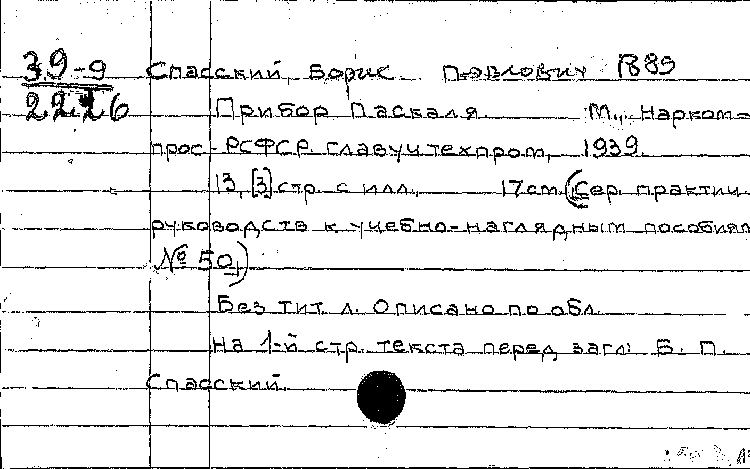 39-9 Спасский, Борис Павлович В89
22226 Прибор Паскаля. М., Нарком=
прос РСФСР. Главучтехпром, 1939.
13, [3] стр. с илл. 17 см. (Сер. практич.
руководств к учебно-наглядным пособиям
№ 50)
Без тит. л. Описано по обл.
На 1-й стр. текста перед загл: Б. П.
Спасский.